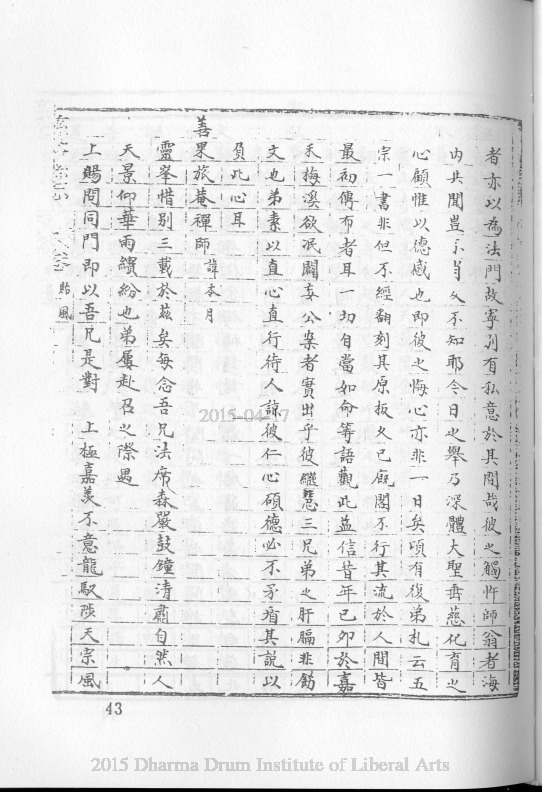 者亦以為法門故寧別有私意於其間哉彼之觸忤師翁者海
內共聞豈不肖又不知耶今日之舉乃深體大聖垂慈化育之
心顧惟以德感也即彼之悔心亦非一日矣頃有復弟札云五
宗一書非但不經翻刻其原板久已廢閣不行其流於人間皆
最初傳布者耳一切自當如命等語觀此益信昔年已卯於嘉
禾梅溪欲泯闢妄公案者實出乎彼繼慧三兄弟之肝膈非飾
文也弟素以直心直行待人諒彼仁心碩德必不矛盾其說以
負此心耳
善果旅菴禪師 諱本月
靈峯惜別三載於茲矣每念吾兄法席森嚴鼓鐘清肅自然人
天景仰華雨繽紛也弟屢赴召之際遇
上賜問同門即以吾兄是對 上極嘉美不意龍馭陟天宗風
43
2015-04-
2015 Dharma Drum Institute of Liberal Arts